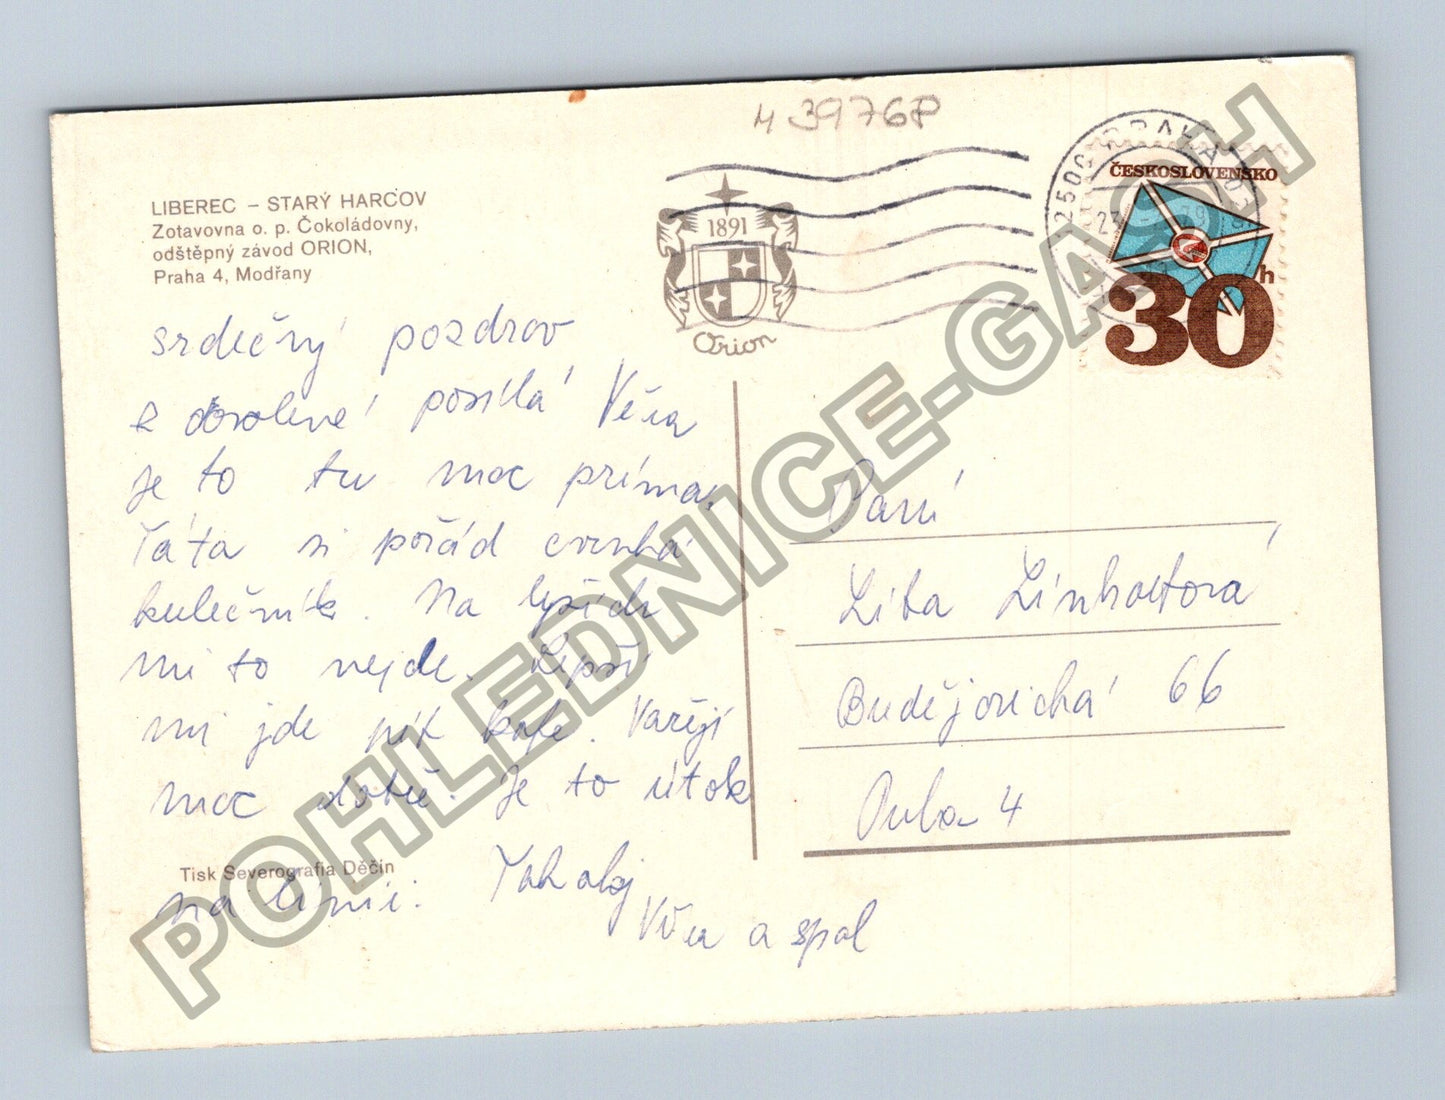 4 3976P
LIBEREC – STARÝ HARCOV
Zotavovna o. p. Čokoládovny,
odštěpný závod ORION,
Praha 4, Modřany
1891
Orion
PRAHA
ČESKOSLOVENSKO
30
h
srdečný pozdrav
z dovolené posílá Věra
je to tu moc príma.
Táta si pořád cvrnká
kulečník. Na lyžích
mi to nejde. Lépší
mi jde pít kafe. Vařejí
moc dobře. Je to útok
na linii. Tak ahoj
Věra a spol
Tisk Severografia Děčín
Paní
Lída Linhartová
Budějovická 66
Praha 4
POHLEDNICE-GASH